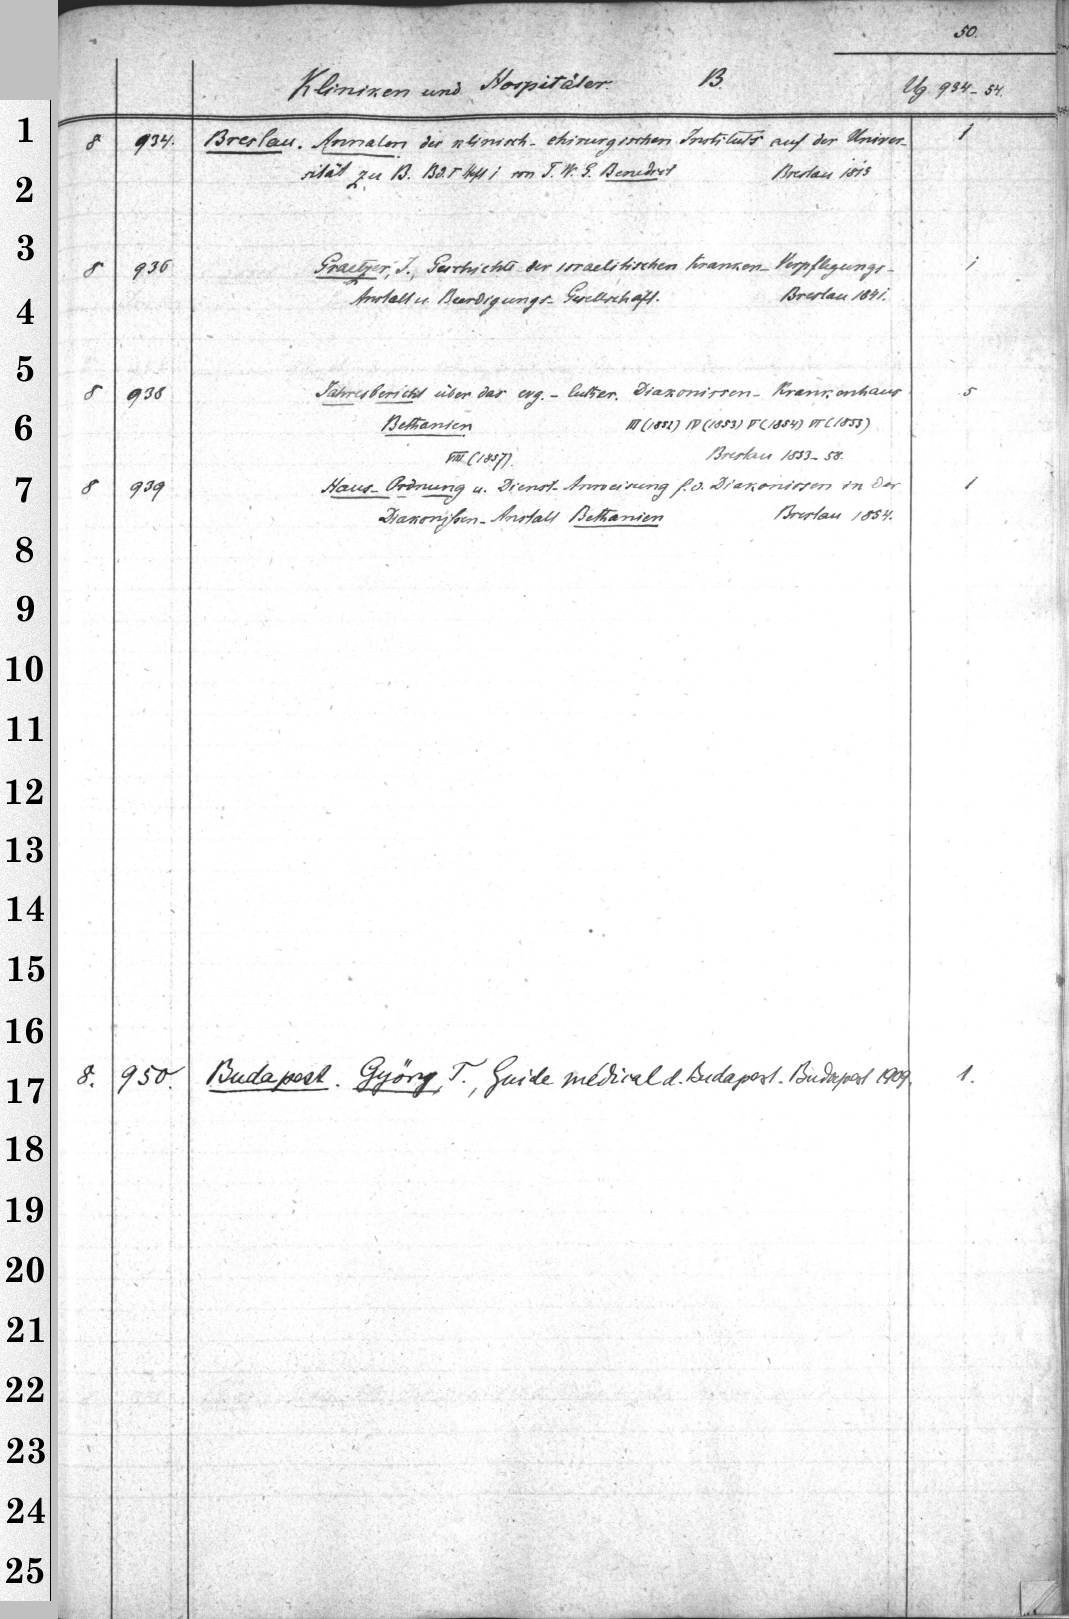 50.
Kliniken und Hospitäler. B. Ug 934-54.
1
2
3
4
5
6
7
8
9
10
11
12
13
14
15
16
17
18
19
20
21
22
23
24
25
8 934. Breslau. Annalen des klinisch-chirurgischen Instituts auf der Univer- 1
sität zu B. Bd. I Heft 1 von T. W. G. Benedict Breslau 1815
8 936 Graetzer, J., Geschichte der israelitischen Kranken-Verpflegungs- 1
Anstalt u. Beerdigungs-Gesellschaft. Breslau 1841.
8 938 Jahresbericht über das evg.-luther. Diakonissen-Krankenhaus 5
Bethanien III (1852) IV (1853) V (1854) VI (1855)
VIII (1857). Breslau 1853-58.
8 939 Haus-Ordnung u. Dienst-Anweisung f. d. Diakonissen in der 1
Diakonissen-Anstalt Bethanien Breslau 1854.
8. 950. Budapest. Györg, T., Guide médical d. Budapest. Budapest 1909. 1.